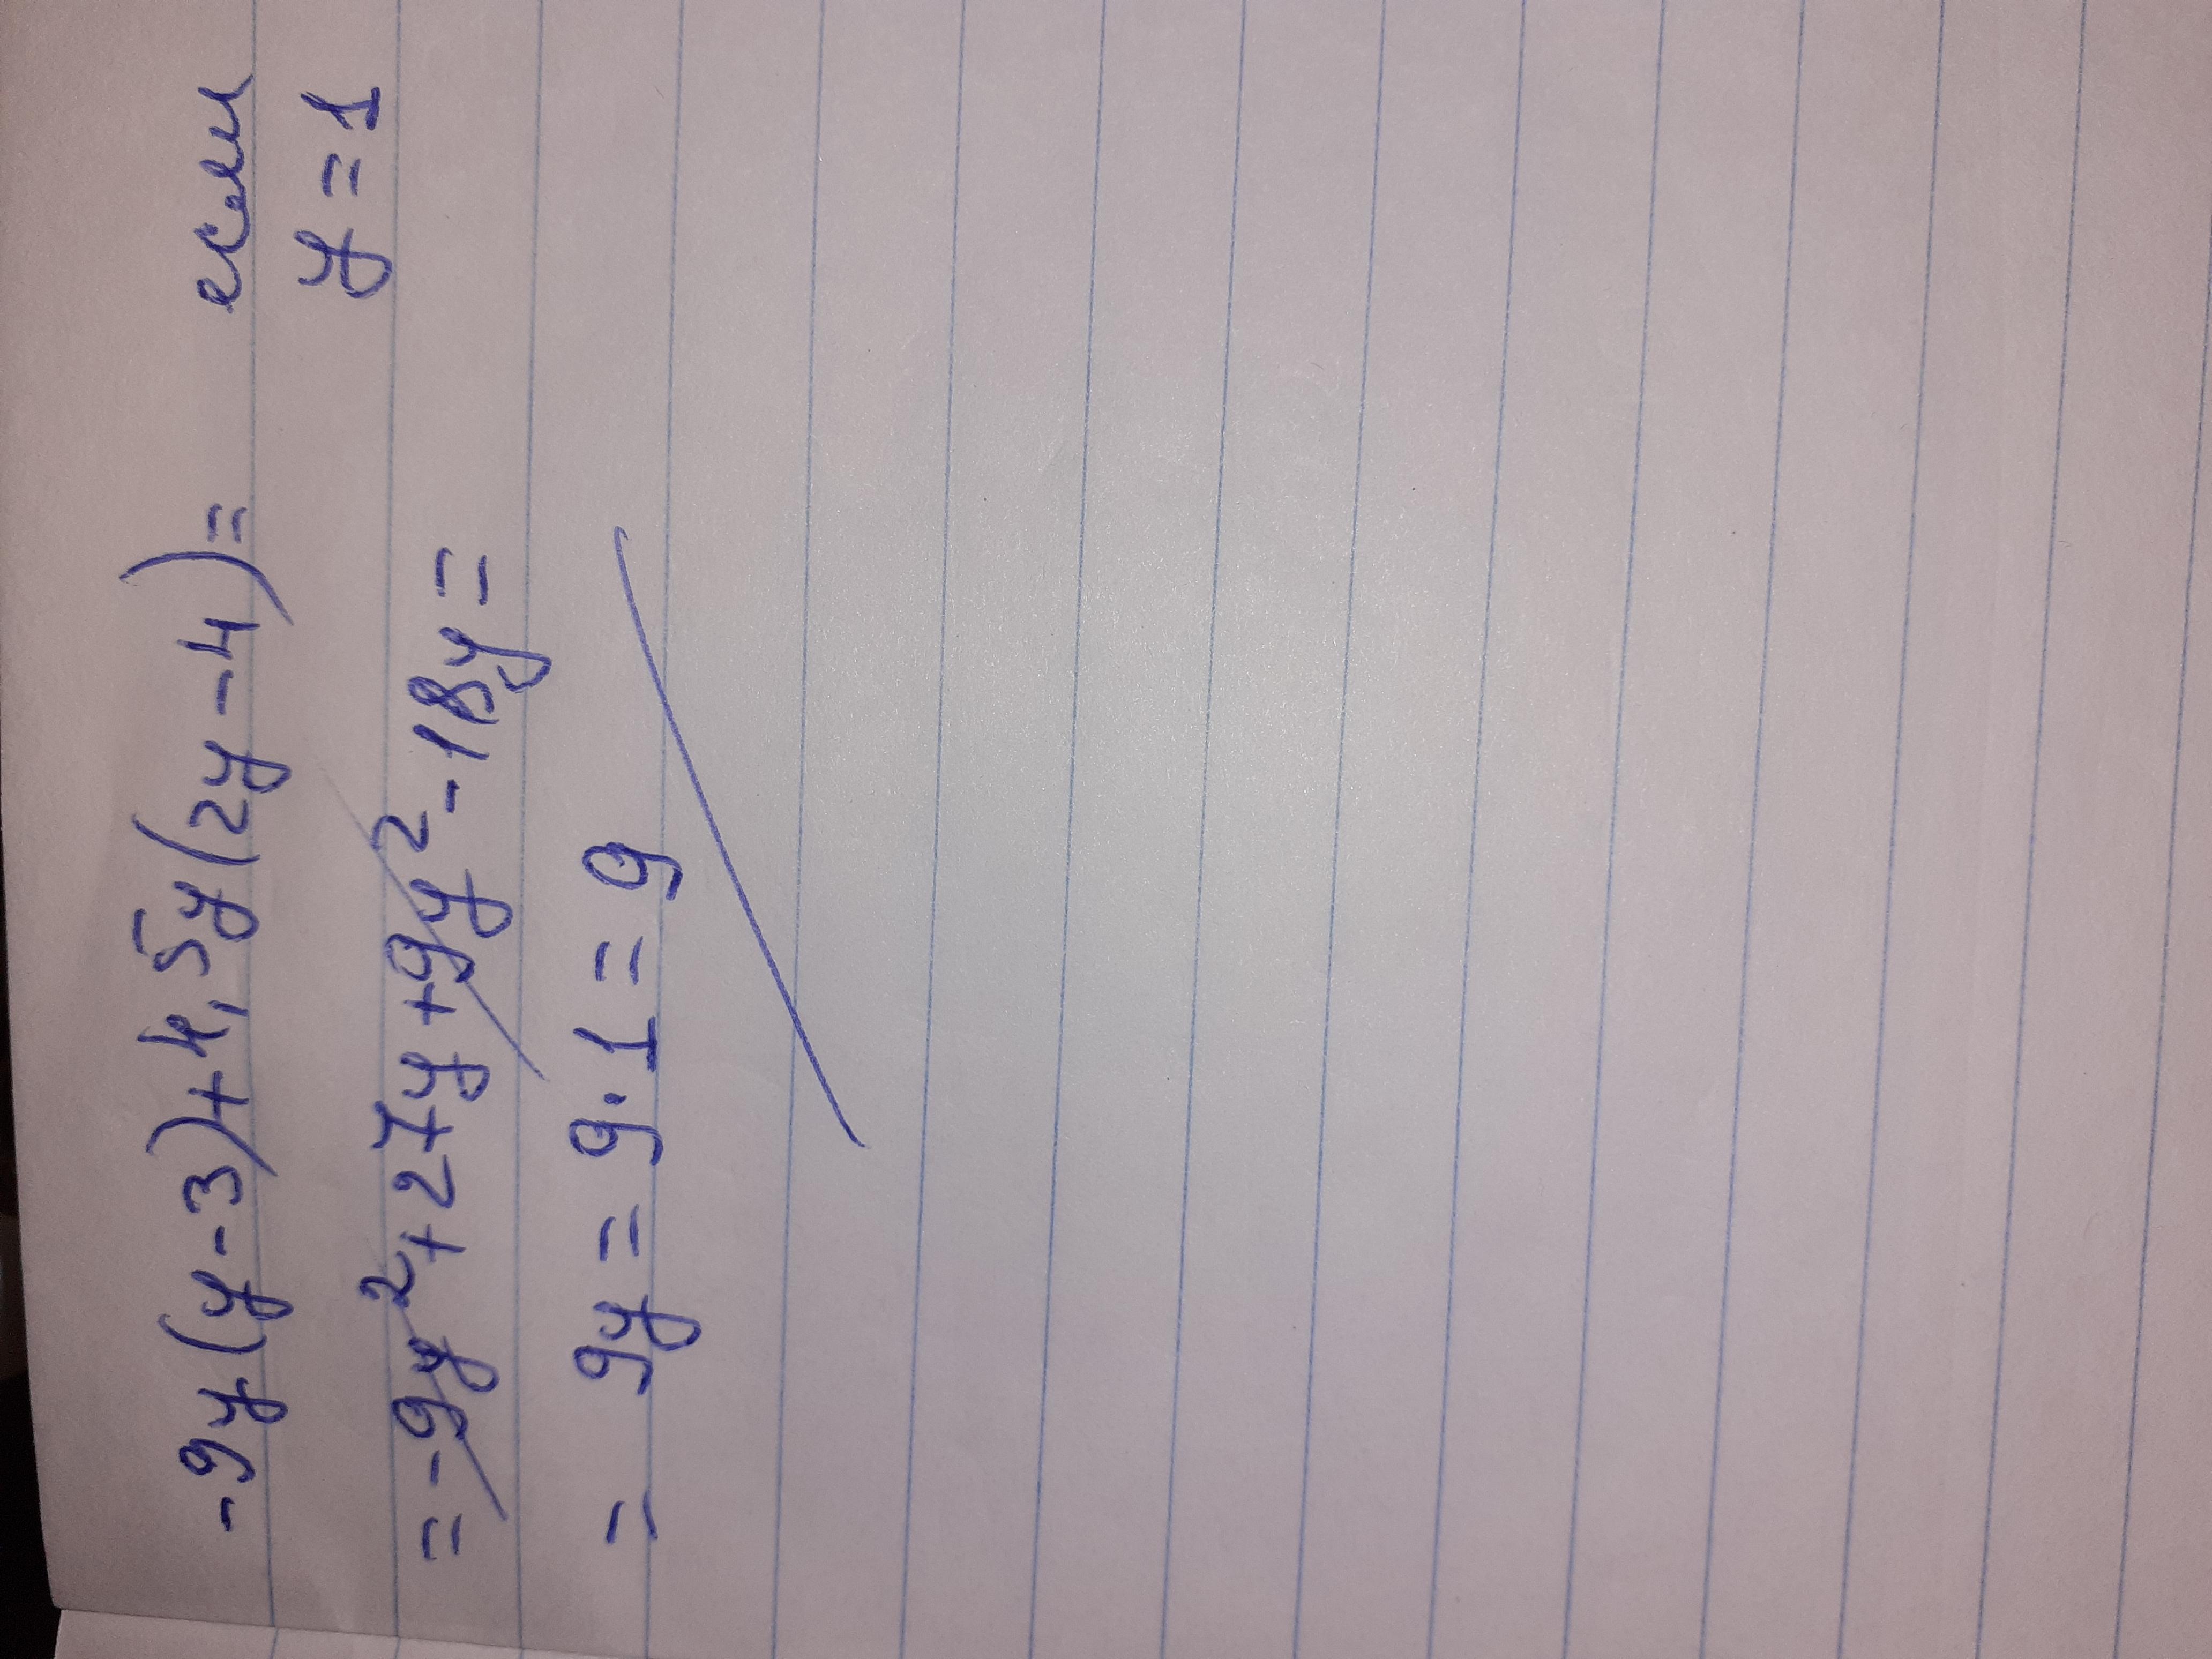 -9y(y-3)+4,5y(2y-4)= если
y=1
=-9y²+27y+9y²-18y=
= 9y=9·1=9